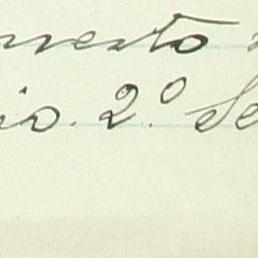 mento
io. 2º Se